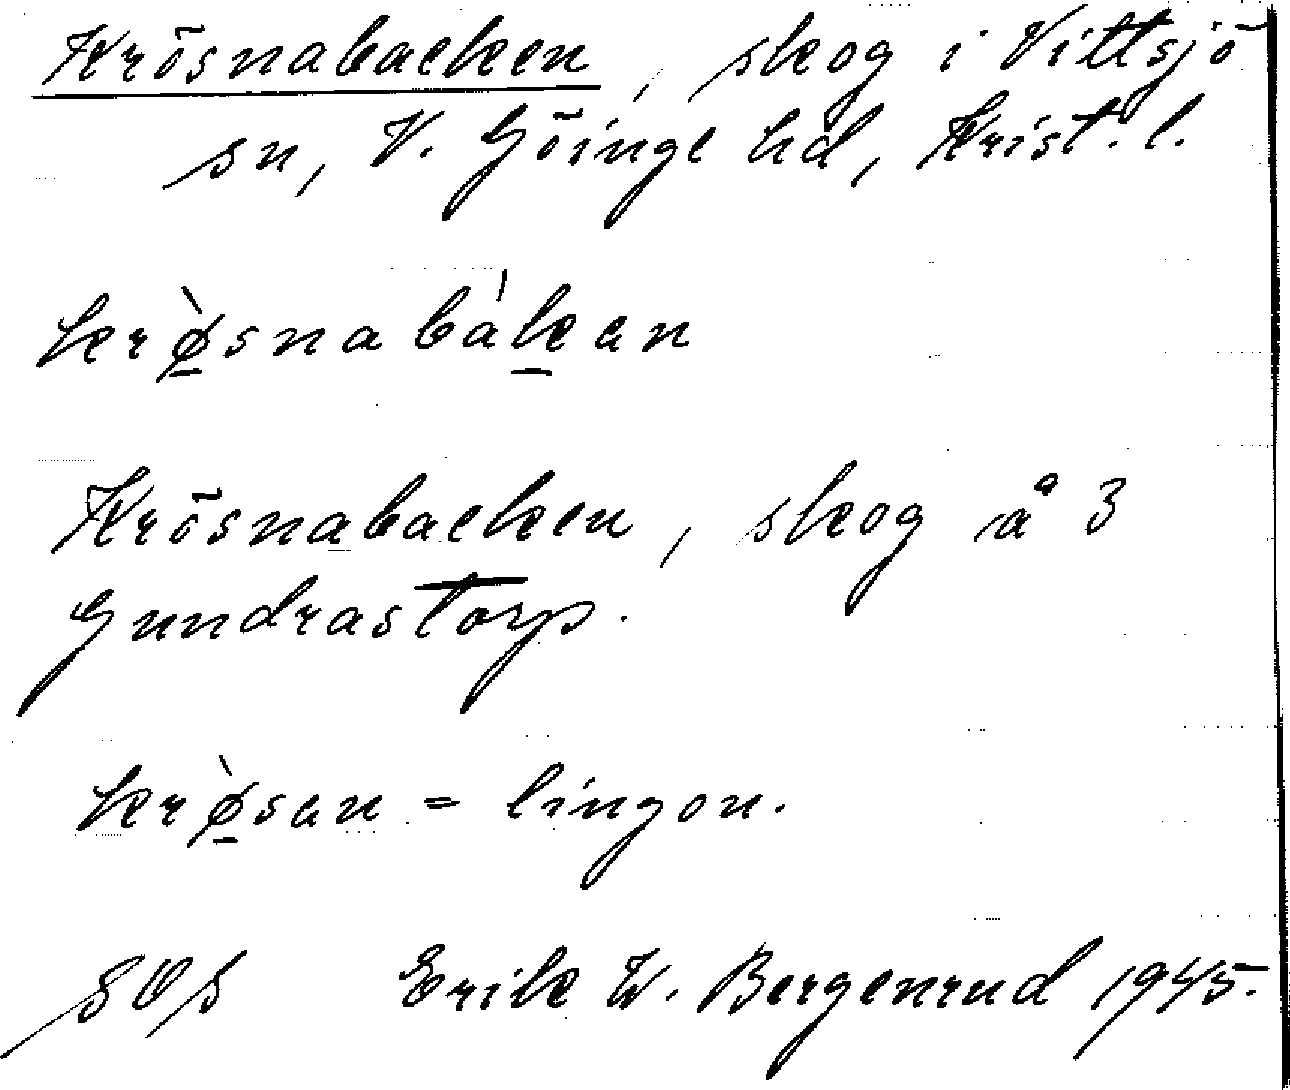 Krösnabacken, skog i Vittsjö
sn, V. Göinge hd, Krist. l.
krø̠̀snabàk̠an
Krösnabacken, skog å 3
Gundrastorp.
krø̠̀san = lingon.
Erik W. Bergenrud 1945.